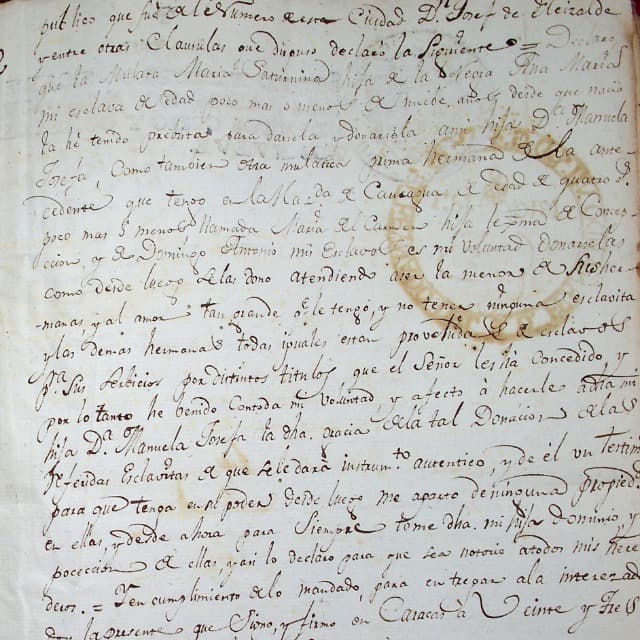 publico que fué de el Numero de esta Ciudad Dn. Josef de Eleizalde
y entre otras Clausulas que dispuso declaró la Siguiente = Declaro
que la Mulata Maria Saturnina hija de la Negra Ana Maria
mi esclava de edad poco mas o menos de nuebe años desde que nacio
la hé tenido para darsela y donarsela a mi hija Da. Manuela
Josefa, como tambien otra mulatica prima hermana de la ante
cedente que tengo en la Hazda. de Caucagua, de edad de quatro as.
poco mas ó menos llamada Maria del Carmen hija lexma. de Concep
cion, y de Domingo Antonio mis Esclavos es mi Voluntad donarselas
como desde luego se las dono atendiendo a ser la menor de sus her
manas, y al amor tan grande qe. le tengo, y no tener ninguna esclavita
y las demas hermanas todas iguales estar proveidas de esclavos
pa. sus Serbicios por distintos titulos que el Señor les há Concedido, y
por lo tanto he benido Con toda mi Voluntad y afecto á hacerle a dha mi
hija Da. Manuela Josefa la dha. gracia de la tal Donacion de las
referidas Esclavitas de que se le dará instrumto. autentico, y de él un testim
para que tenga en su poder desde luego me aparto de ninguna propied.
en ellas, y desde ahora para Siempre tome dha. mi hija Dominio, y
pocecion de ellas, y asi lo declaro para que sea notorio a todos mis here
deros. = Y en cumplimiento de lo mandado, para entregar a la interezad
doy la presente que Signo, y firmo en Caracas á Veinte y Tres